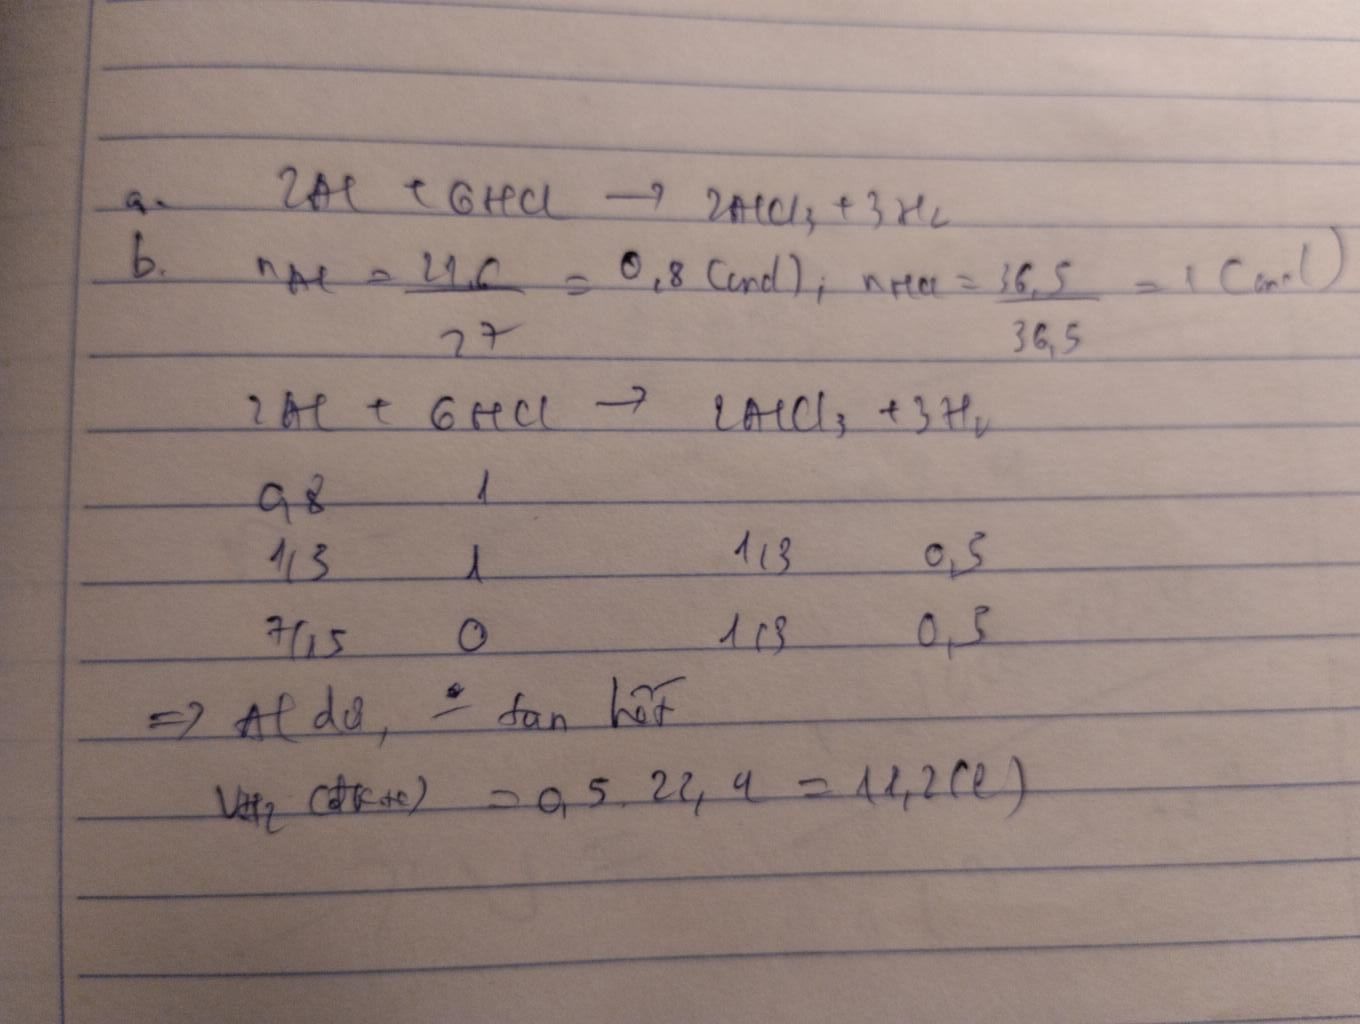 a. 2Al + 6HCl → 2AlCl3 + 3H2
b. nAl = 21,6 / 27 = 0,8 (mol); nHCl = 36,5 / 36,5 = 1 (mol)
2Al + 6HCl → 2AlCl3 + 3H2
0,8 1
1/3 1 1/3 0,5
7/15 0 1/3 0,5
=> Al dư, tan hết
VH2 (đktc) = 0,5. 22,4 = 11,2 (l)